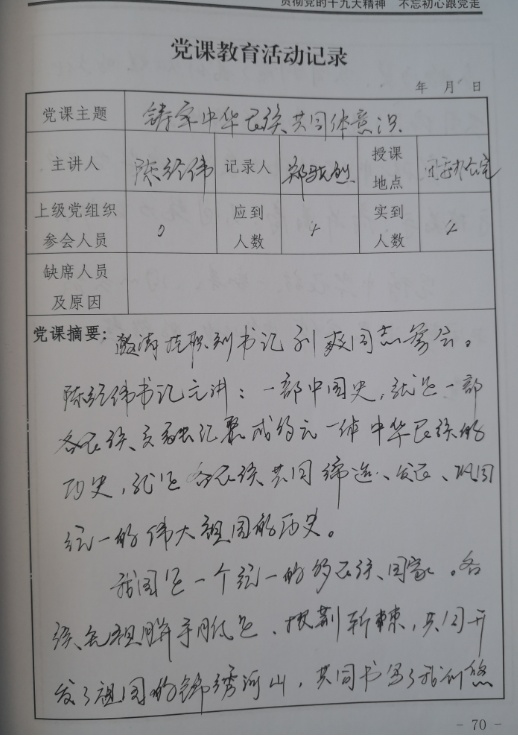 贯彻党的十九大精神 不忘初心跟党走
党课教育活动记录
年 月 日
党课主题 铸牢中华民族共同体意识
主讲人 陈经伟 记录人 授课地点
上级党组织参会人员 0 应到人数 实到人数
缺席人员及原因
党课摘要：邀请挂职副书记刘爽同志参会。
陈经伟书记主讲：一部中国史，就是一部
各民族交融汇聚成多元一体中华民族的
历史，就是各民族共同缔造、发展、巩固
统一的伟大祖国的历史。
我国是一个统一的多民族国家。各
族先祖胼手胝足、披荆斩棘，共同开
发了祖国的锦绣河山，共同书写了我们悠
- 70 -